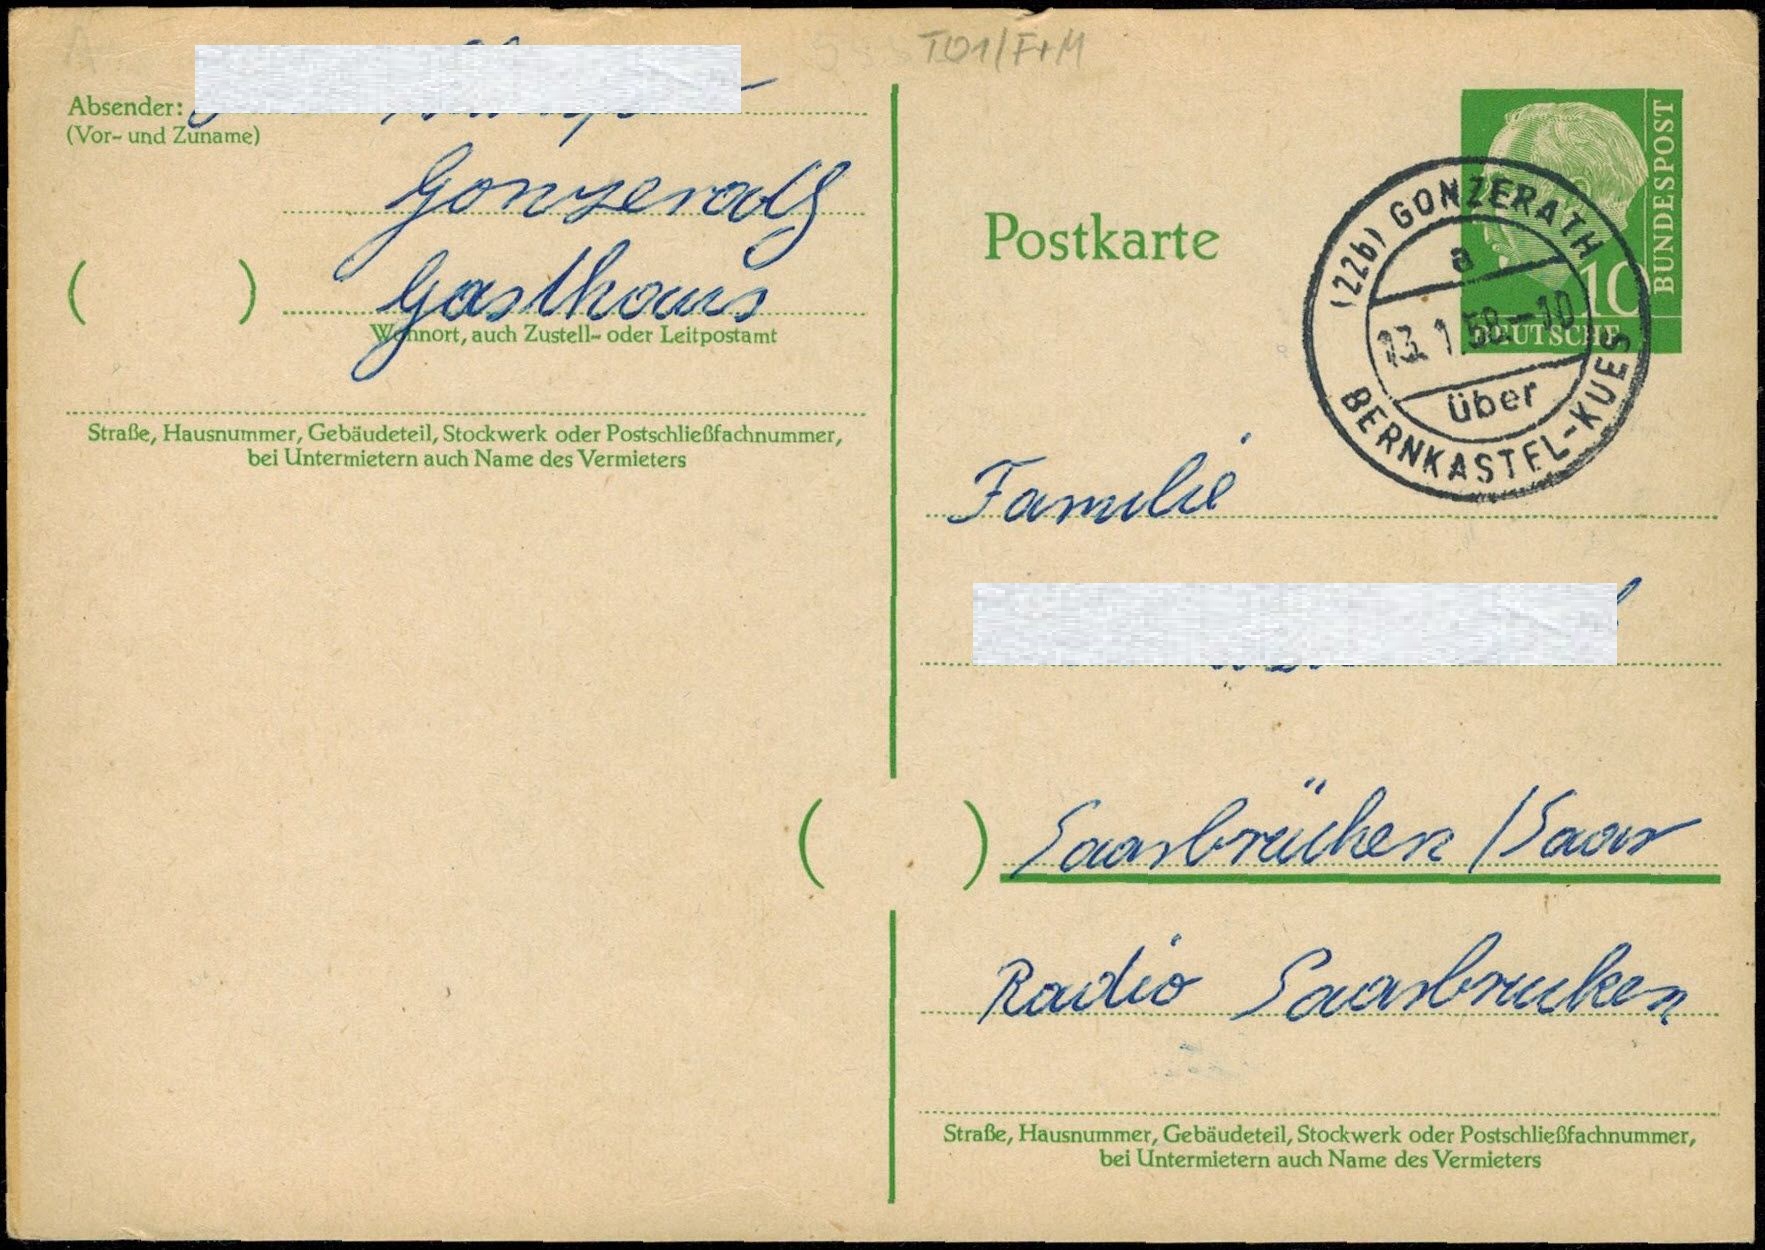 T01/F+M
Absender:
(Vor- und Zuname)
Gonzerath
Gasthaus
( )
Wohnort, auch Zustell- oder Leitpostamt
Straße, Hausnummer, Gebäudeteil, Stockwerk oder Postschließfachnummer,
bei Untermietern auch Name des Vermieters
Postkarte
DEUTSCHE
BUNDESPOST
10
(22b) GONZERATH
a
13. 1. 58.-10
über
BERNKASTEL-KUES
Familie
( ) Saarbrücken / Saar
Radio Saarbrucken
Straße, Hausnummer, Gebäudeteil, Stockwerk oder Postschließfachnummer,
bei Untermietern auch Name des Vermieters